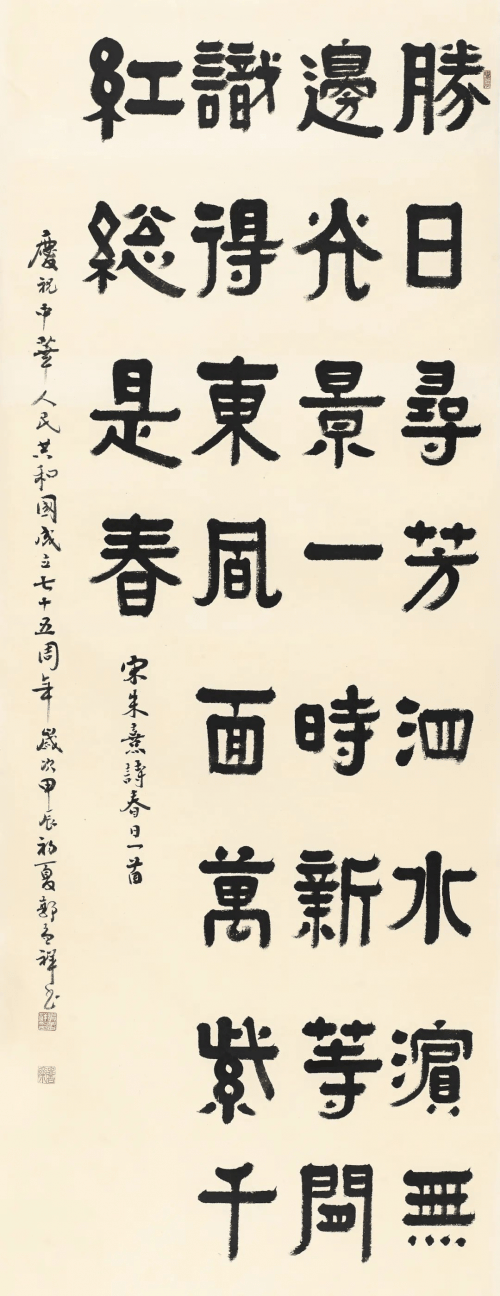 勝日尋芳泗水濱無
邊光景一時新等閒
識得東風面萬紫千
紅総是春
宋朱熹詩春日一首
慶祝中華人民共和國成立七十五周年歲次甲辰初夏郭祥书